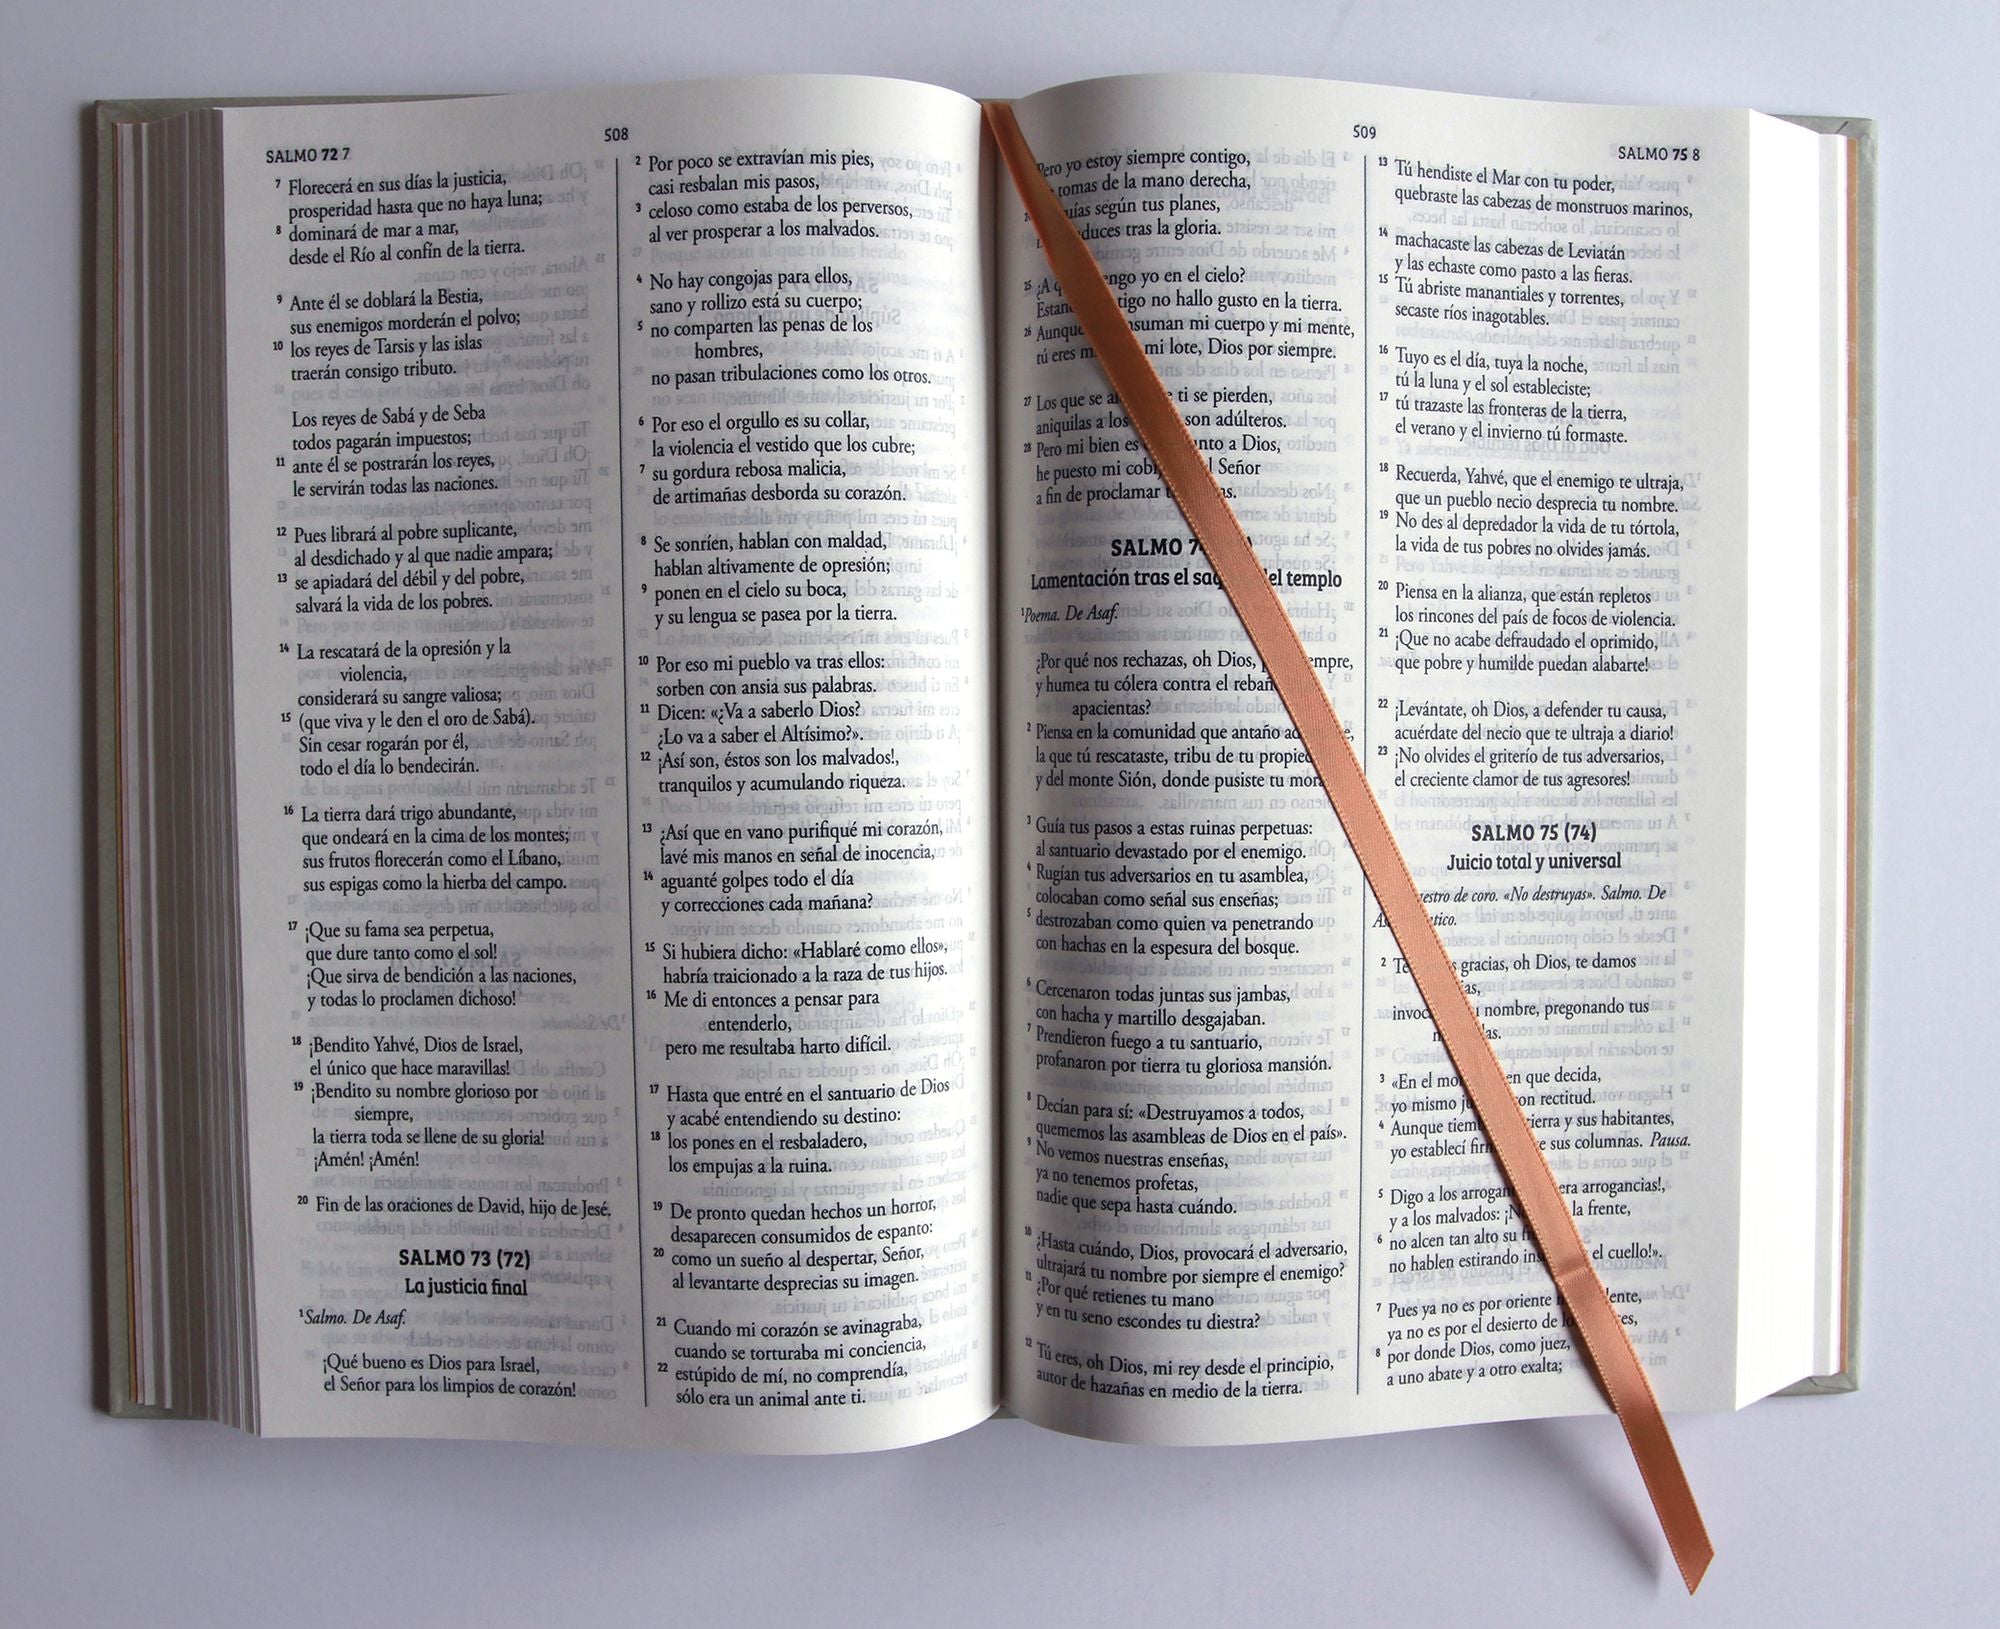 SALMO 72 7
508
7 Florecerá en sus días la justicia,
prosperidad hasta que no haya luna;
8 dominará de mar a mar,
desde el Río al confín de la tierra.
9 Ante él se doblará la Bestia,
sus enemigos morderán el polvo;
10 los reyes de Tarsis y las islas
traerán consigo tributo.
Los reyes de Sabá y de Seba
todos pagarán impuestos;
11 ante él se postrarán los reyes,
le servirán todas las naciones.
12 Pues librará al pobre suplicante,
al desdichado y al que nadie ampara;
13 se apiadará del débil y del pobre,
salvará la vida de los pobres.
14 La rescatará de la opresión y la
violencia,
considerará su sangre valiosa;
15 (que viva y le den el oro de Sabá).
Sin cesar rogarán por él,
todo el día lo bendecirán.
16 La tierra dará trigo abundante,
que ondeará en la cima de los montes;
sus frutos florecerán como el Líbano,
sus espigas como la hierba del campo.
17 ¡Que su fama sea perpetua,
que dure tanto como el sol!
¡Que sirva de bendición a las naciones,
y todas lo proclamen dichoso!
18 ¡Bendito Yahvé, Dios de Israel,
el único que hace maravillas!
19 ¡Bendito su nombre glorioso por
siempre,
la tierra toda se llene de su gloria!
¡Amén! ¡Amén!
20 Fin de las oraciones de David, hijo de Jesé.
SALMO 73 (72)
La justicia final
1 Salmo. De Asaf.
¡Qué bueno es Dios para Israel,
el Señor para los limpios de corazón!
2 Por poco se extravían mis pies,
casi resbalan mis pasos,
3 celoso como estaba de los perversos,
al ver prosperar a los malvados.
4 No hay congojas para ellos,
sano y rollizo está su cuerpo;
5 no comparten las penas de los
hombres,
no pasan tribulaciones como los otros.
6 Por eso el orgullo es su collar,
la violencia el vestido que los cubre;
7 su gordura rebosa malicia,
de artimañas desborda su corazón.
8 Se sonríen, hablan con maldad,
hablan altivamente de opresión;
9 ponen en el cielo su boca,
y su lengua se pasea por la tierra.
10 Por eso mi pueblo va tras ellos:
sorben con ansia sus palabras.
11 Dicen: «¿Va a saberlo Dios?
¿Lo va a saber el Altísimo?».
12 ¡Así son, éstos son los malvados!,
tranquilos y acumulando riqueza.
13 ¿Así que en vano purifiqué mi corazón,
lavé mis manos en señal de inocencia,
14 aguanté golpes todo el día
y correcciones cada mañana?
15 Si hubiera dicho: «Hablaré como ellos»,
habría traicionado a la raza de tus hijos.
16 Me di entonces a pensar para
entenderlo,
pero me resultaba harto difícil.
17 Hasta que entré en el santuario de Dios
y acabé entendiendo su destino:
18 los pones en el resbaladero,
los empujas a la ruina.
19 De pronto quedan hechos un horror,
desaparecen consumidos de espanto:
20 como un sueño al despertar, Señor,
al levantarte desprecias su imagen.
21 Cuando mi corazón se avinagraba,
cuando se torturaba mi conciencia,
22 estúpido de mí, no comprendía,
sólo era un animal ante ti.
509
SALMO 75 8
Pero yo estoy siempre contigo,
tomas de la mano derecha,
según tus planes,
tras la gloria.
25 yo en el cielo?
no hallo gusto en la tierra.
26 Aunque mi cuerpo y mi mente,
tú eres mi lote, Dios por siempre.
27 Los que se ti se pierden,
aniquilas a los son adúlteros.
28 Pero mi bien es a Dios,
he puesto mi Señor
a fin de proclamar
SALMO
Lamentación tras el del templo
1 Poema. De Asaf.
¿Por qué nos rechazas, oh Dios,
y humea tu cólera contra el
apacientas?
2 Piensa en la comunidad que antaño
la que tú rescataste, tribu de tu
y del monte Sión, donde pusiste tu
3 Guía tus pasos a estas ruinas perpetuas:
al santuario devastado por el enemigo.
4 Rugían tus adversarios en tu asamblea,
colocaban como señal sus enseñas;
5 destrozaban como quien va penetrando
con hachas en la espesura del bosque.
6 Cercenaron todas juntas sus jambas,
con hacha y martillo desgajaban.
7 Prendieron fuego a tu santuario,
profanaron por tierra tu gloriosa mansión.
8 Decían para sí: «Destruyamos a todos,
quememos las asambleas de Dios en el país».
9 No vemos nuestras enseñas,
ya no tenemos profetas,
nadie que sepa hasta cuándo.
10 ¿Hasta cuándo, Dios, provocará el adversario,
ultrajará tu nombre por siempre el enemigo?
11 ¿Por qué retienes tu mano
y en tu seno escondes tu diestra?
12 Tú eres, oh Dios, mi rey desde el principio,
autor de hazañas en medio de la tierra.
13 Tú hendiste el Mar con tu poder,
quebraste las cabezas de monstruos marinos,
14 machacaste las cabezas de Leviatán
y las echaste como pasto a las fieras.
15 Tú abriste manantiales y torrentes,
secaste ríos inagotables.
16 Tuyo es el día, tuya la noche,
tú la luna y el sol estableciste;
17 tú trazaste las fronteras de la tierra,
el verano y el invierno tú formaste.
18 Recuerda, Yahvé, que el enemigo te ultraja,
que un pueblo necio desprecia tu nombre.
19 No des al depredador la vida de tu tórtola,
la vida de tus pobres no olvides jamás.
20 Piensa en la alianza, que están repletos
los rincones del país de focos de violencia.
21 ¡Que no acabe defraudado el oprimido,
que pobre y humilde puedan alabarte!
22 ¡Levántate, oh Dios, a defender tu causa,
acuérdate del necio que te ultraja a diario!
23 ¡No olvides el griterío de tus adversarios,
el creciente clamor de tus agresores!
SALMO 75 (74)
Juicio total y universal
de coro. «No destruyas». Salmo. De
2 gracias, oh Dios, te damos
nombre, pregonando tus
3 «En el que decida,
yo mismo con rectitud.
4 Aunque tierra y sus habitantes,
yo establecí sus columnas. Pausa.
5 Digo a los arrogancias!,
y a los malvados: la frente,
6 no alcen tan alto su
no hablen estirando el cuello!».
7 Pues ya no es por oriente
ya no es por el desierto de
8 por donde Dios, como juez,
a uno abate y a otro exalta;